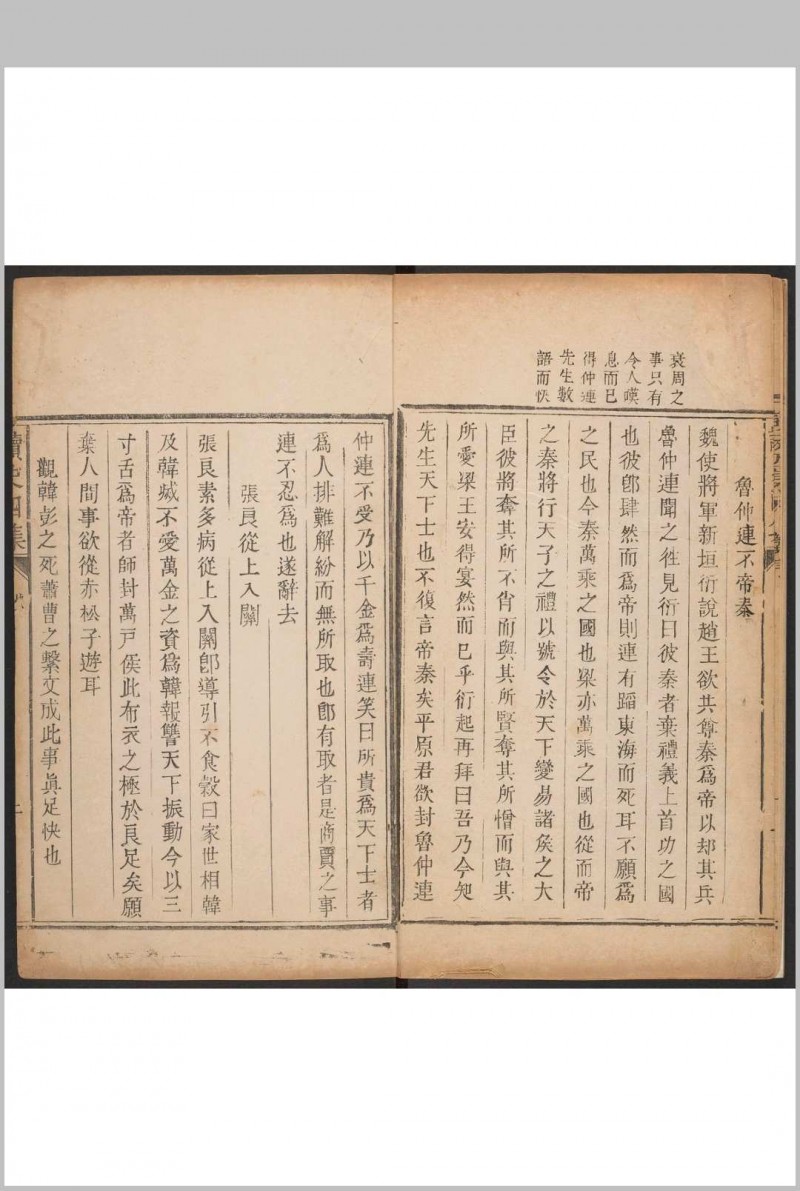 衰周之
事只有
令人嘆
息而已
得仲連
先生數
語而快
魯仲連不帝秦
魏使將軍新垣衍說趙王欲共尊秦爲帝以却其兵
魯仲連聞之徃見衍曰彼秦者棄禮義上首功之國
也彼卽肆然而爲帝則連有蹈東海而死耳不願爲
之民也今秦萬乘之國也梁亦萬乘之國也從而帝
之秦將行天子之禮以號令於天下變易諸矦之大
臣彼將奪其所不肖而與其所賢奪其所憎而與其
所愛梁王安得宴然而已乎衍起再拜曰吾乃今知
先生天下士也不復言帝秦矣平原君欲封魯仲連
仲連不受乃以千金爲壽連笑曰所貴爲天下士者
爲人排難解紛而無所取也卽有取者是商賈之事
連不忍爲也遂辭去
張良從上入關
張良素多病從上入關卽導引不食穀曰家世相韓
及韓滅不愛萬金之資爲韓報讐天下振動今以三
寸舌爲帝者師封萬戸矦此布衣之極於良足矣願
棄人間事欲從赤松子遊耳
觀韓彭之死蕭曹之繫文成此事眞足快也
讀史四集